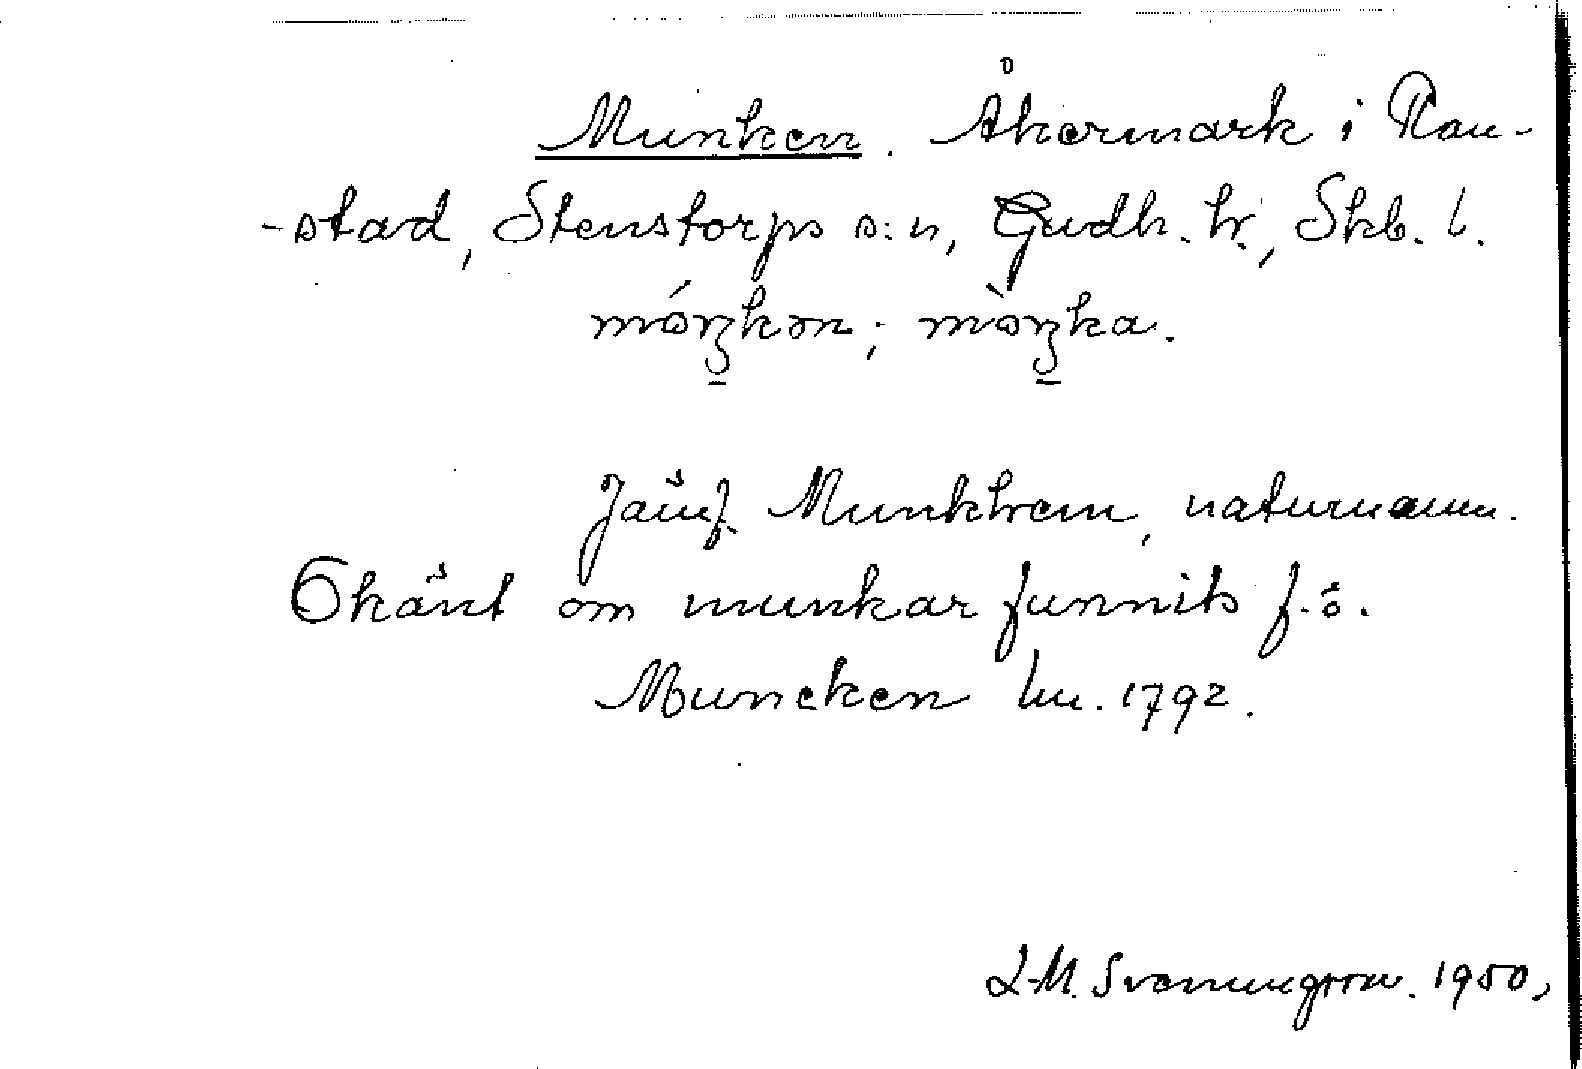 Munken. Åkermark i Rau-
-stad, Stenstorps s:n, Gudh. hr., Skb. l.
móŋkən; mòŋka.
Jämf. Munkhem, naturnamn.
Okänt om munkar funnits f.ö.
Muncken lm. 1792.
L-M. Svenungsson. 1950,